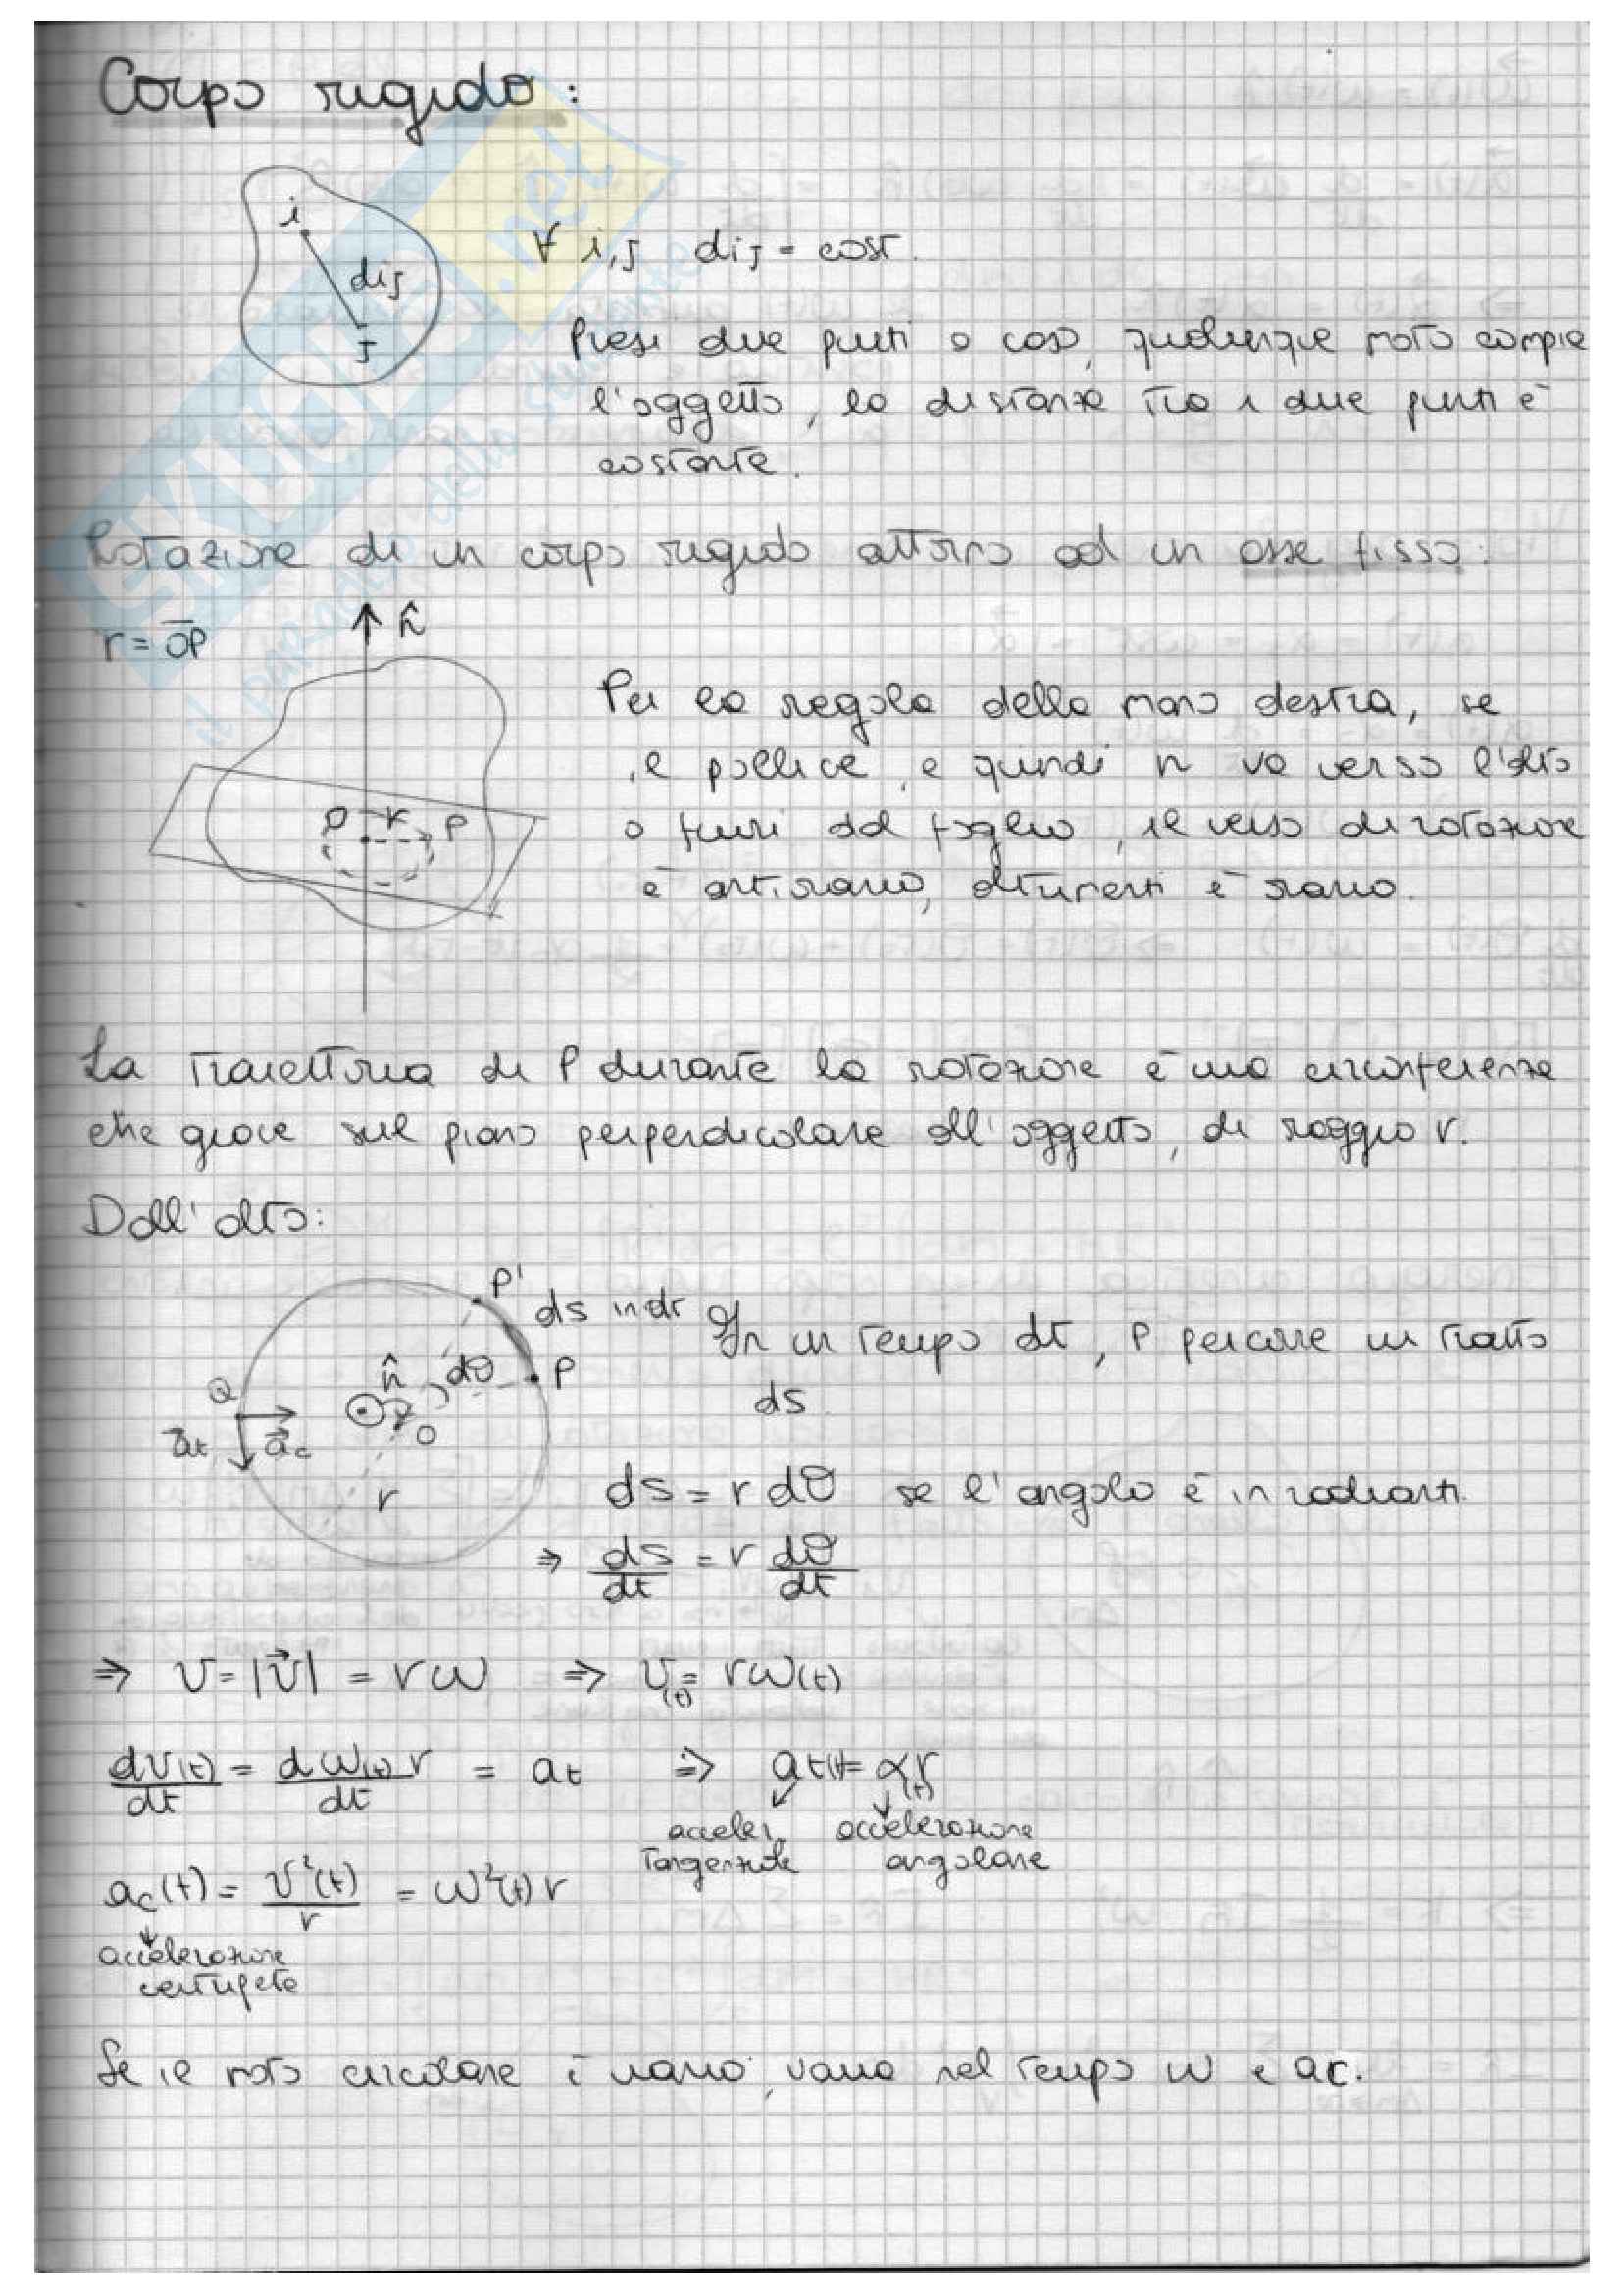 Corpo rigido:
i
dij
j
∀ i,j dij = cost.
Presi due punti a caso, qualunque moto compie
l'oggetto, la distanza tra i due punti è
costante.
Rotazione di un corpo rigido attorno ad un asse fisso:
r = OP
n̂
O r P
Per la regola della mano destra, se
il pollice, e quindi n va verso l'alto
o fuori dal foglio, il verso di rotazione
è antiorario, altrimenti è orario.
La traiettoria di P durante la rotazione è una circonferenza
che giace sul piano perpendicolare all'oggetto, di raggio r.
Dall'alto:
P'
ds in dt
In un tempo dt, P percorre un tratto
ds.
n̂ dθ P
Q
O
a⃗t a⃗c
r
ds = r dθ se l'angolo è in radianti.
⇒ ds/dt = r dθ/dt
⇒ v = |v⃗| = rω ⇒ v(t) = rω(t)
dv(t)/dt = dω(t)/dt r = at ⇒ at(t) = α(t)r
acceler. tangenziale
accelerazione angolare
ac(t) = v²(t)/r = ω²(t) r
accelerazione
centripeta
Se il moto circolare è vario, varia nel tempo ω e ac.
SKUOLA.net
il paradiso dello studente